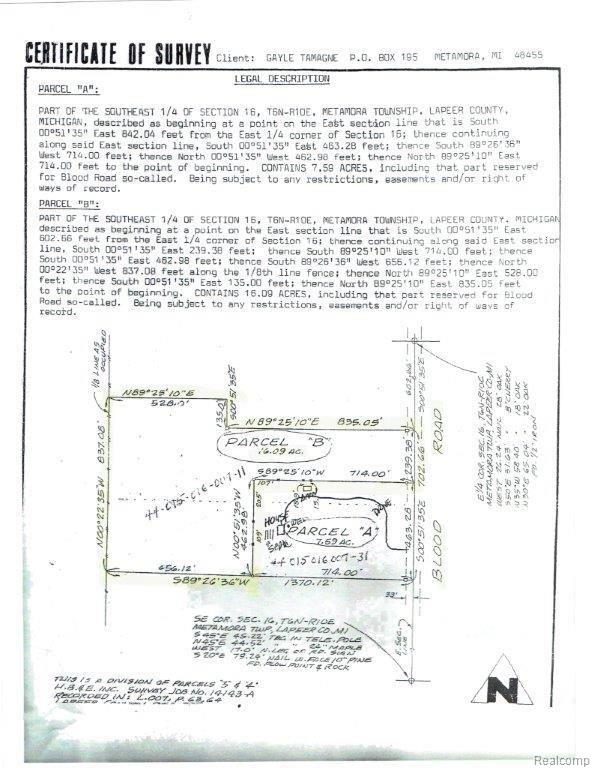 CERTIFICATE OF SURVEY Client: GAYLE TAMAGNE P.O. BOX 195 METAMORA, MI 48455
LEGAL DESCRIPTION
PARCEL "A":
PART OF THE SOUTHEAST 1/4 OF SECTION 16, T6N-R10E, METAMORA TOWNSHIP, LAPEER COUNTY,
MICHIGAN, described as beginning at a point on the East section line that is South
00°51'35" East 842.04 feet from the East 1/4 corner of Section 16; thence continuing
along said East section line, South 00°51'35" East 463.28 feet; thence South 89°26'36"
West 714.00 feet; thence North 00°51'35" West 462.98 feet; thence North 89°25'10" East
714.00 feet to the point of beginning. CONTAINS 7.59 ACRES, including that part reserved
for Blood Road so-called. Being subject to any restrictions, easements and/or right of
ways of record.
PARCEL "B":
PART OF THE SOUTHEAST 1/4 OF SECTION 16, T6N-R10E, METAMORA TOWNSHIP, LAPEER COUNTY, MICHIGAN
described as beginning at a point on the East section line that is South 00°51'35" East
602.66 feet from the East 1/4 corner of Section 16; thence continuing along said East section
line, South 00°51'35" East 239.38 feet; thence South 89°25'10" West 714.00 feet; thence
South 00°51'35" East 462.98 feet; thence South 89°26'36" West 656.12 feet; thence North
00°22'35" West 837.08 feet along the 1/8th line fence; thence North 89°25'10" East 528.00
feet; thence South 00°51'35" East 135.00 feet; thence North 89°25'10" East 835.05 feet
to the point of beginning. CONTAINS 16.09 ACRES, including that part reserved for Blood
Road so-called. Being subject to any restrictions, easements and/or right of ways of
record.
1/8 LINE AS
OCCUPIED
N89°25'10"E
528.0'
S00°51'35"E
135.0'
N 89°25'10"E 835.05'
602.66'
S00°51'35"E
702.66'
239.38'
ROAD
E 1/4 COR. SEC. 16, T6N-R10E
METAMORA TWP, LAPEER CO. MI
837.08'
N00°22'35"W
PARCEL "B"
16.09 AC.
S89°25'10"W 714.00'
107'
205'
109'
BARN
HOUSE
WELL
DRIVE
PARCEL "A"
7.59 AC.
N00°51'35"W
462.98'
463.28'
S00°51'35"E
BLOOD
44-015-016-007-11
44 015 016 007-31
656.12'
714.00'
S89°26'36"W 1370.12'
33'
E. SEC.
LINE
SE COR. SEC. 16, T6N-R10E
METAMORA TWP, LAPEER CO. MI
S45°E 45.22' TAG IN TELE. POLE
N45°E 44.52' " " 24" MAPLE
WEST 17.0' N. LEG OF RD. SIGN
S20°E 79.24' NAIL W. FACE 10" PINE
FD. PLOW POINT & ROCK
THIS IS A DIVISION OF PARCELS "3" & "4"
H.B.&E. INC. SURVEY JOB NO. 14143-A
RECORDED IN: L.007, P. 63,64
N
Realcomp